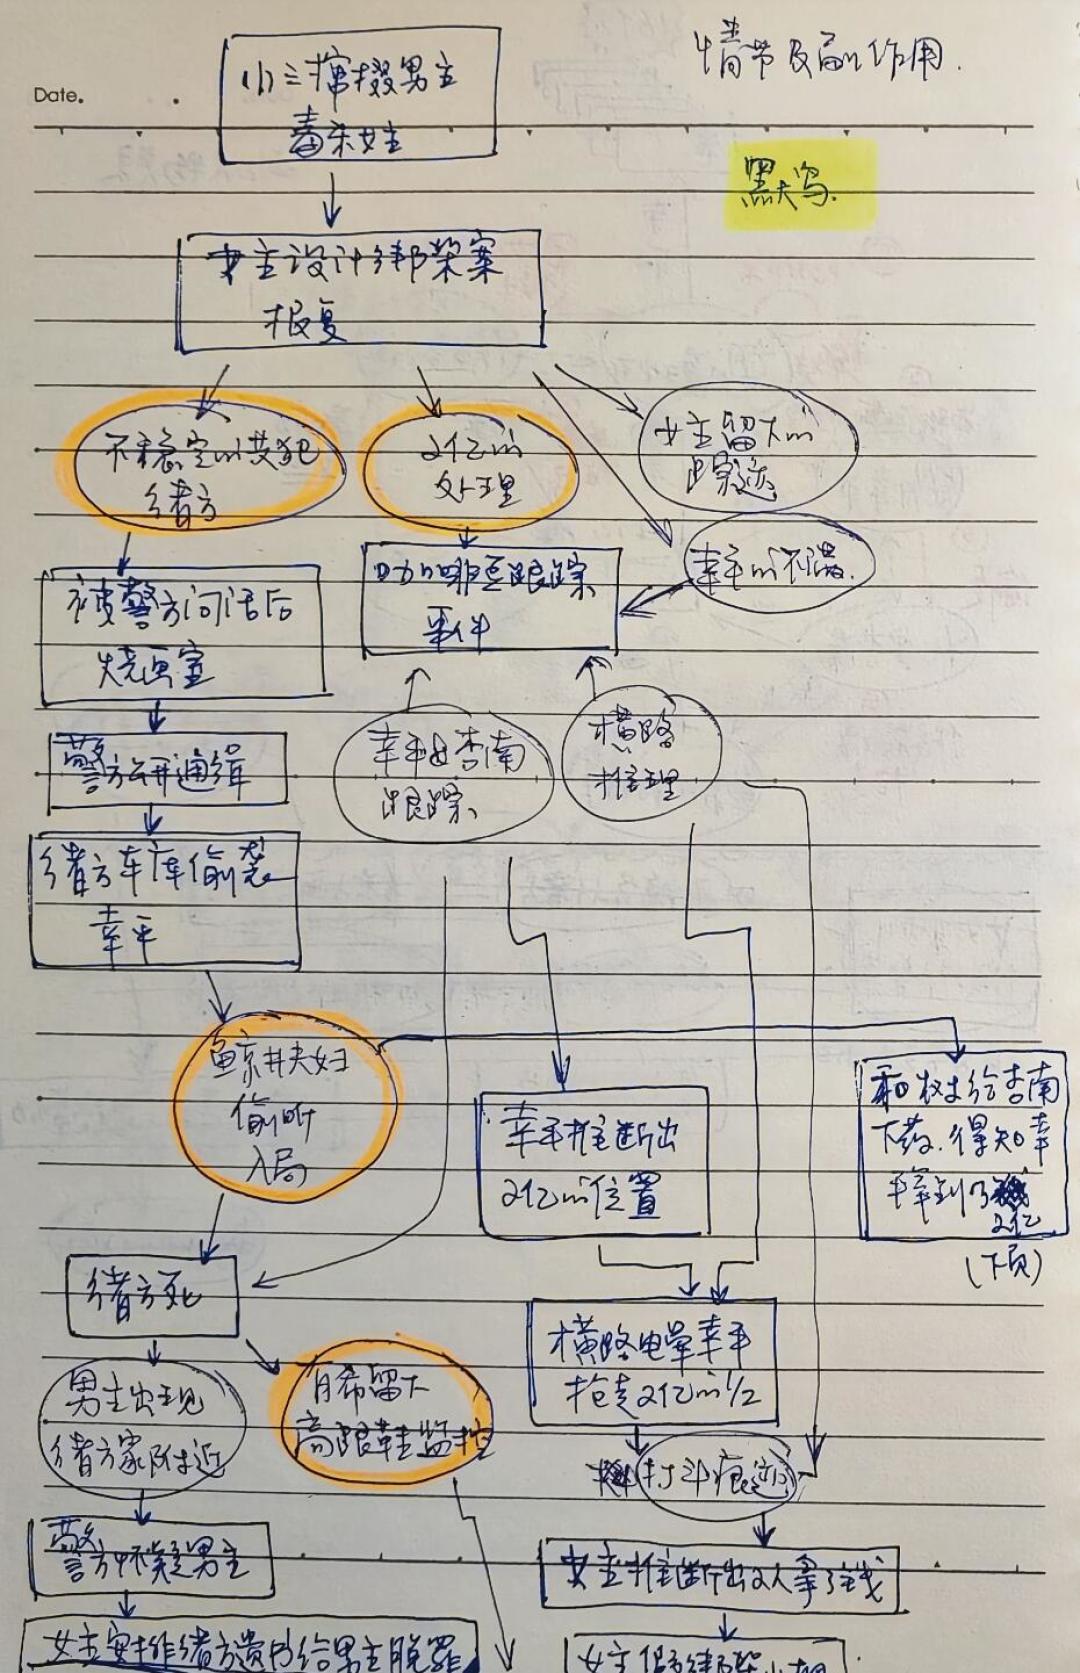 情节及副作用.
Date.
小三撺掇男主
毒杀女主
黑天鹅.
女主设计绑架案
报复
不稳定的共犯
绪方
2亿的
处理
女主留下的
踪迹
幸平的不满.
咖啡豆跟踪
事件
被警方问话后
烧画室
幸平与杏南
跟踪
横路
推理
警方公开通缉
绪方车库偷袭
幸平
鲸井夫妇
偷听
入局
幸平推断出
2亿的位置
和树给杏南
下药.得知幸
平拿到了
2亿
(下页)
绪方死
横路电晕幸平
抢走2亿的1/2
男主出现
绪方家附近
留下
高跟鞋监控
打斗痕迹
警方怀疑男主
女主推断出2人拿了钱
女主安排绪方遗书给男主脱罪
女主